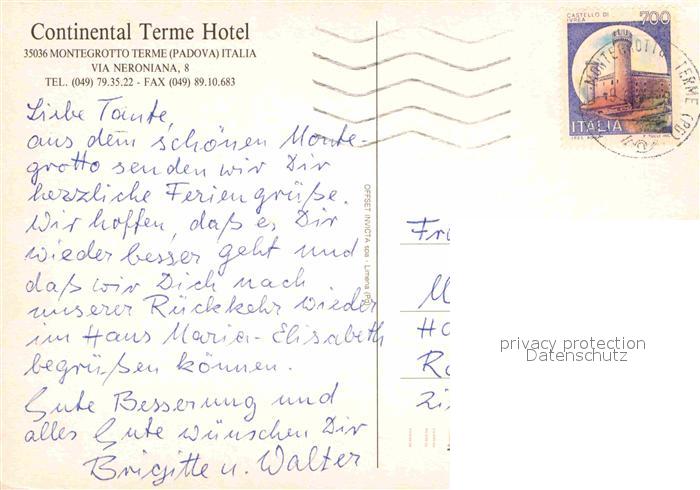 Continental Terme Hotel
35036 MONTEGROTTO TERME (PADOVA) ITALIA
VIA NERONIANA, 8
TEL. (049) 79.35.22 - FAX (049) 89.10.683
Liebe Tante,
aus dem schönen Monte-
grotto senden wir Dir
herzliche Feriengrüße.
Wir hoffen, daß es Dir
wieder besser geht und
daß wir Dich nach
unserer Rückkehr wieder
im Haus Maria-Elisabeth
begrüßen können.
Gute Besserung und
alles Gute wünschen Dir
Brigitte u. Walter
OFFSET INVICTA spa - Limena (PD)
CASTELLO DI
IVREA
700
ITALIA
MONTEGROTTO TERME (PD)
Fr
M
Ha
Ro
privacy protection
Datenschutz